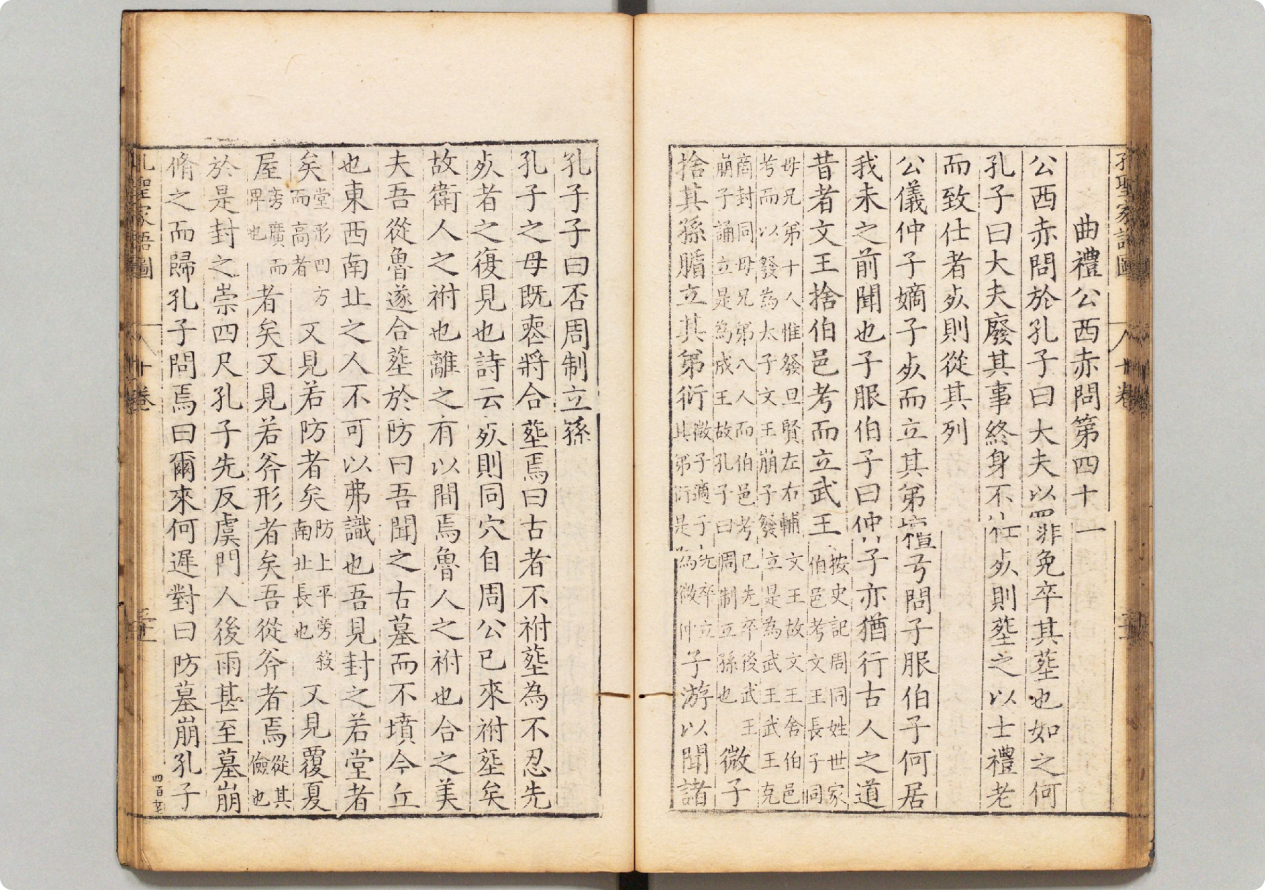 孔聖家語圖 八 十卷
曲禮公西赤問第四十一
公西赤問於孔子曰大夫以罪免卒其塟也如之何
孔子曰大夫廢其事終身不仕死則塟之以士禮老
而致仕者死則從其列
公儀仲子嫡子死而立其弟檀弓問子服伯子何居
我未之前聞也子服伯子曰仲子亦猶行古人之道
昔者文王捨伯邑考而立武王按史記周同姓世家伯邑考文王長子同
母兄弟十人惟發旦賢左右輔文王故文王舍伯邑
考而以發為太子文王崩子發立是為武王武王克
商封同母兄弟八人而伯邑考已先卒後武王
崩子誦立是為成王故孔子曰周制立孫也微子
捨其孫腯立其弟衍微子適子先卒立其弟衍是為微仲子游以聞諸
孔子子曰否周制立孫
孔子之母既喪將合塟焉曰古者不祔塟為不忍先
死者之復見也詩云死則同穴自周公已來祔塟矣
故衛人之祔也離之有以間焉魯人之祔也合之美
夫吾從魯遂合塟於防曰吾聞之古墓而不墳今丘
也東西南北之人不可以弗識也吾見封之若堂者
矣堂形四方而高者又見若防者矣防上平旁殺南北長也又見覆夏
屋旁廣而卑也者矣又見若斧形者矣吾從斧者焉從其儉也
於是封之崇四尺孔子先反虞門人後雨甚至墓崩
脩之而歸孔子問焉曰爾來何遲對曰防墓崩孔子
孔聖家語圖 八 十卷